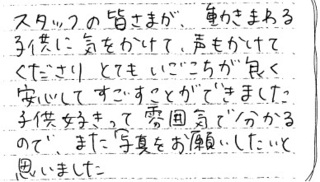 スタッフの皆さまが、動きまわる
子供に気をかけて、声もかけて
くださり とても いごこちが 良く
安心して すごすことができました
子供好きって 雰囲気で分かる
ので、また 写真を お願いしたいと
思いました